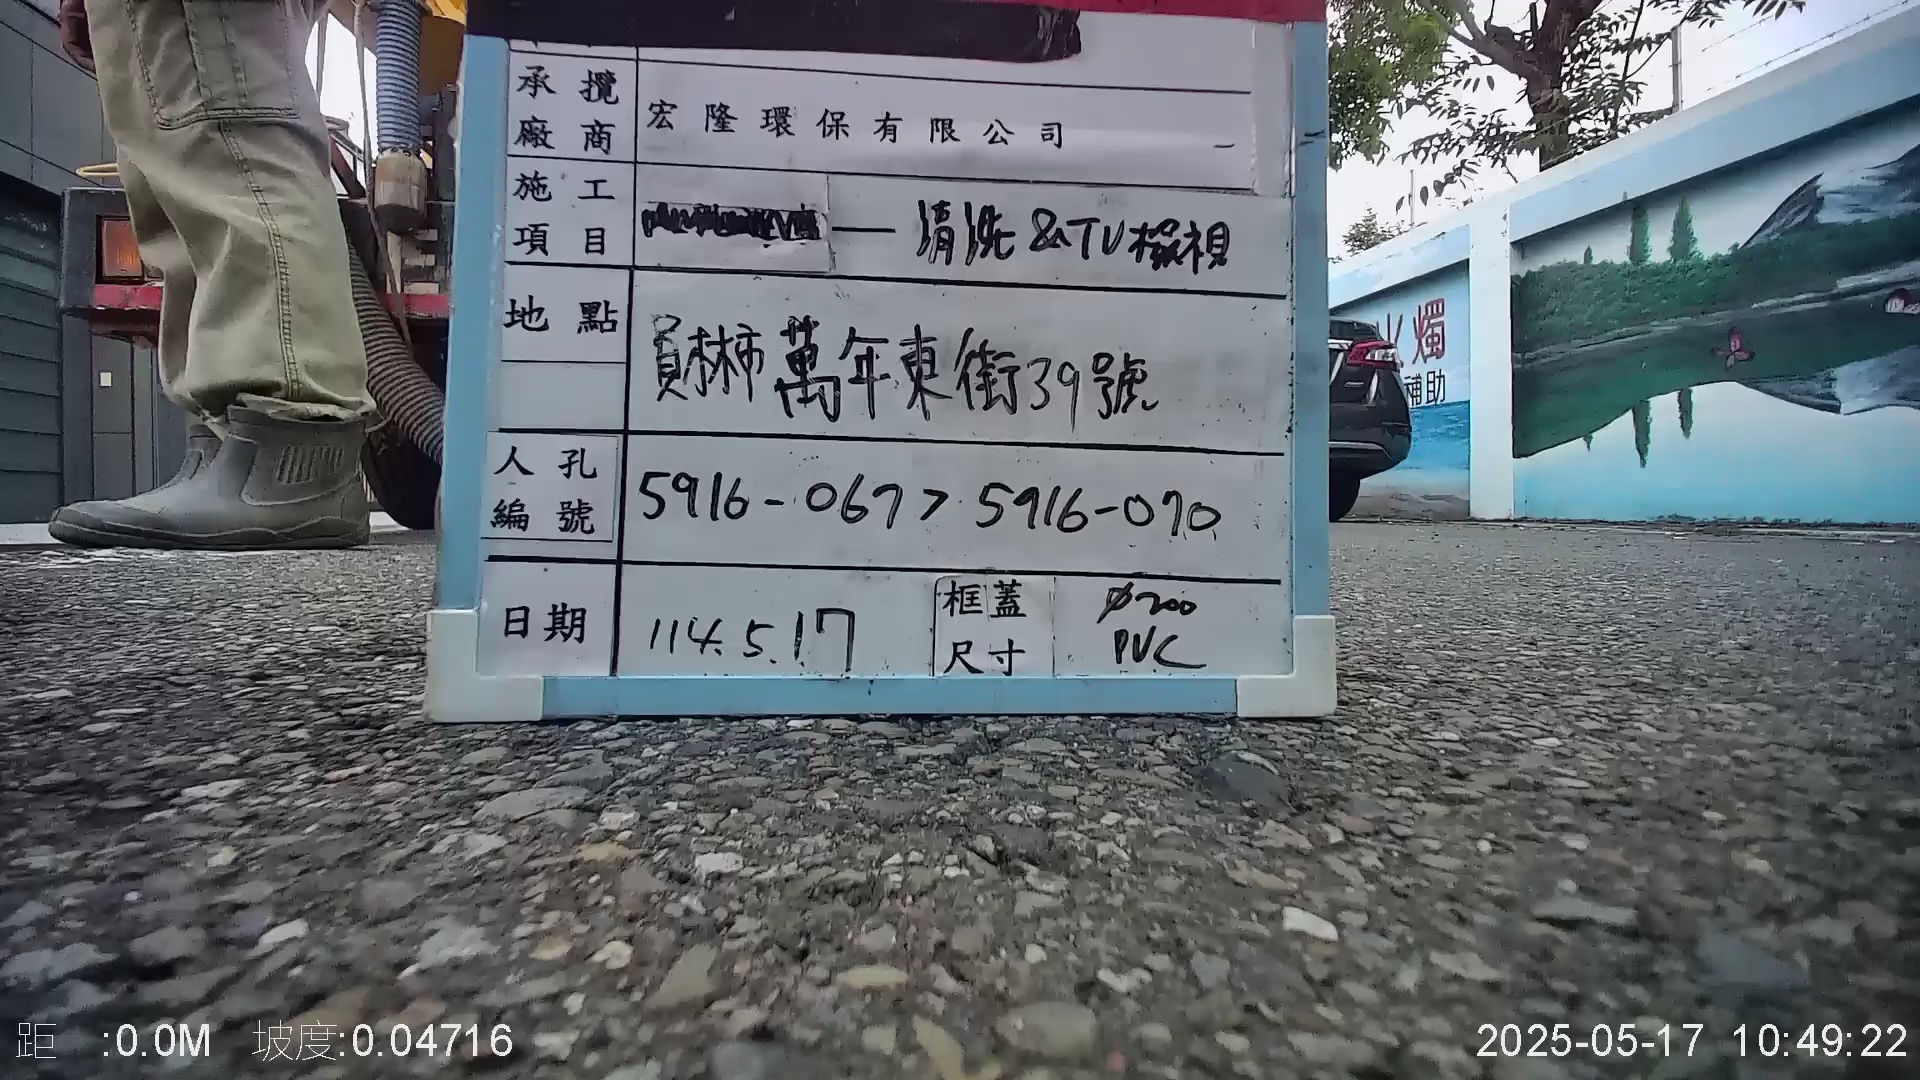 承攬
廠商
宏隆環保有限公司
施工
項目
— 清洗&TV檢視
地點
員林市萬年東街39號
人孔
編號
5916-067>5916-070
日期
114.5.17
框蓋
尺寸
Ø200
PVC
火燭
補助
距 :0.0M 坡度:0.04716
2025-05-17 10:49:22